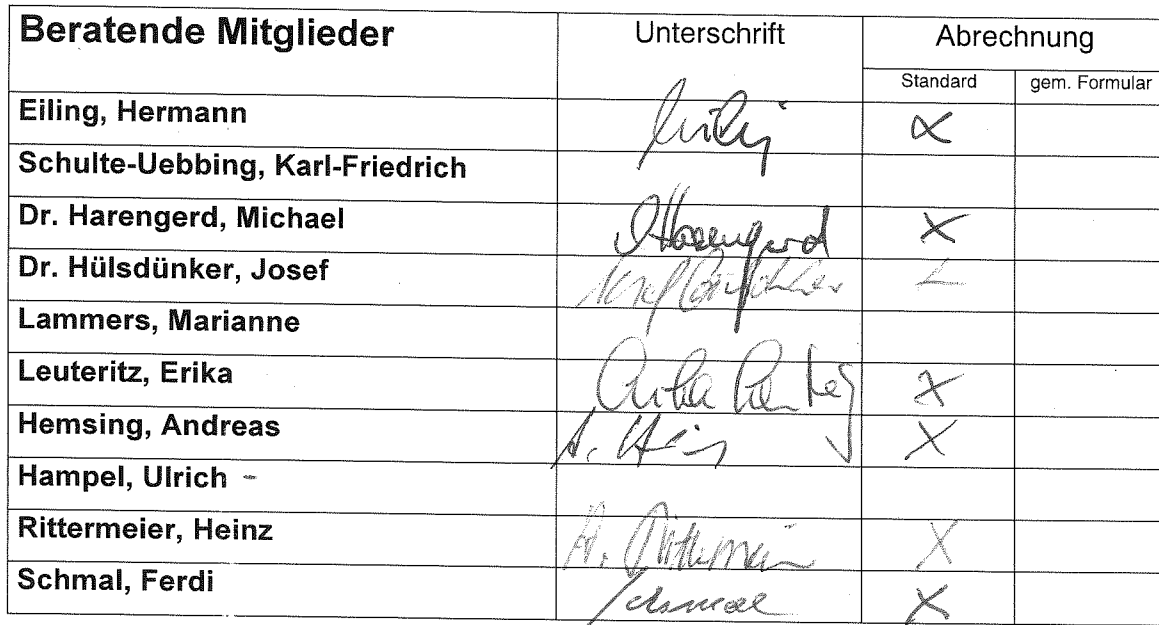 Beratende Mitglieder Unterschrift Abrechnung
Standard gem. Formular
Eiling, Hermann X
Schulte-Uebbing, Karl-Friedrich
Dr. Harengerd, Michael Harengerd X
Dr. Hülsdünker, Josef
Lammers, Marianne
Leuteritz, Erika X
Hemsing, Andreas A. X
Hampel, Ulrich -
Rittermeier, Heinz H. X
Schmal, Ferdi Schmal X